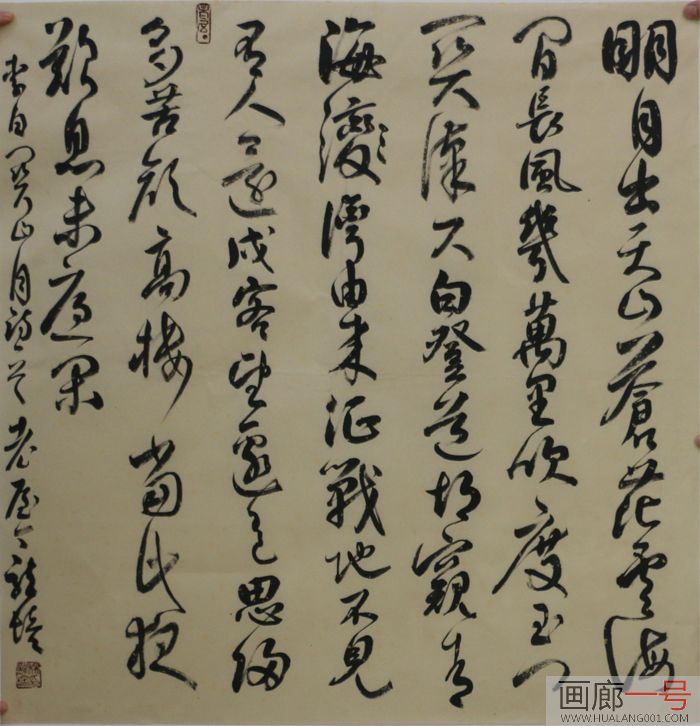 明月出天山蒼茫雲海
間長風幾萬里吹度玉門
關漢下白登道胡窺青
海灣由来征戰地不見
有人還戍客望邊色思歸
多苦顏高樓當此夜
歎息未應閑
李白關山月詩 老屋
画廊一号
WWW.HUALANG001.COM